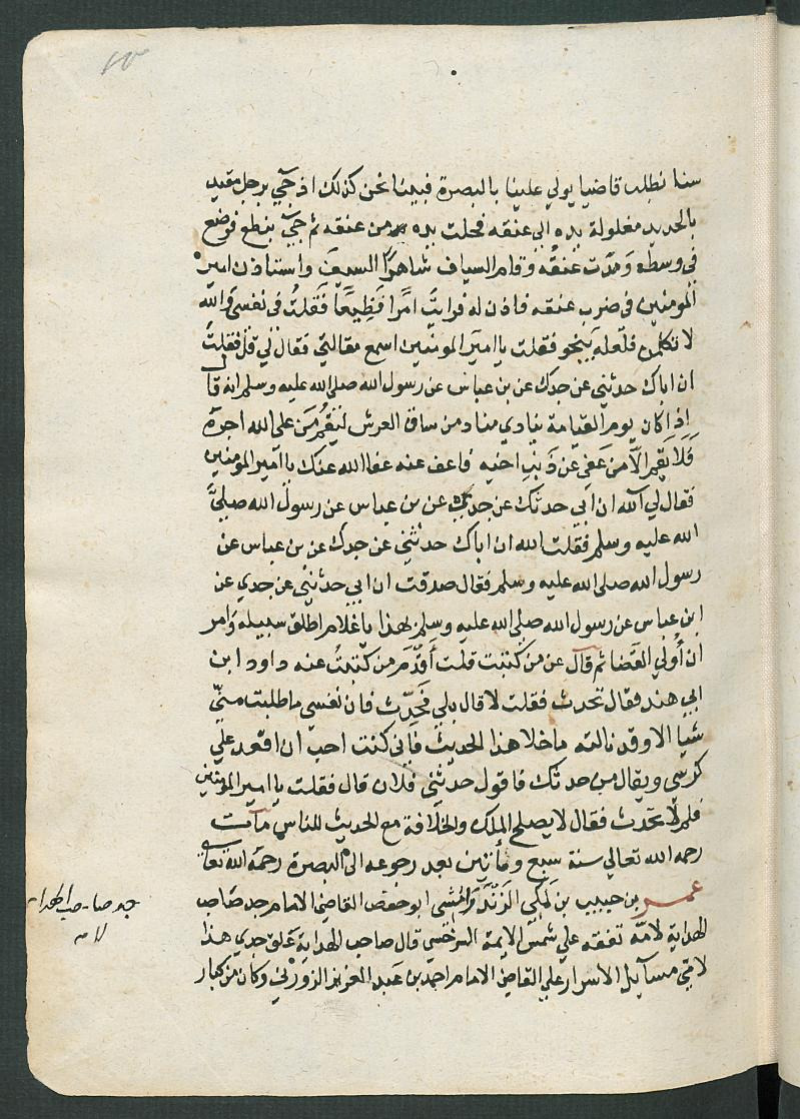 سنا نطلب قاضيا يولي علينا بالبصرة فبينا نحن كذلك اذ جي برجل مقيد
بالحديد مغلولة يده الي عنقه فحلت يده من عنقه ثم جي بنطع فوضع
في وسطه ومدت عنقه وقام السياف شاهرا السيف واستاذن امير
المومنين في ضرب عنقه فاذن له فرايت امرا فظيعا فقلت في نفسي والله
لا تكلمن فلعله ينجو فقلت يا امير المومنين اسمع مقالتي فقال لي قل فقلت
ان اباك حدثني عن جدك عن بن عباس عن رسول الله صلى الله عليه وسلم انه قال
اذا كان يوم القيامة ينادي مناد من ساق العرش ليقم من على الله اجره
فلا يقم الا من عفى عن ذنب اخيه فاعف عنه عفا الله عنك يا امير المومنين
فقال لي الله ان ابي حدثك عن جدك عن بن عباس عن رسول الله صلى
الله عليه وسلم فقلت الله ان اباك حدثني عن جدك عن بن عباس عن
رسول الله صلى الله عليه وسلم فقال صدقت ان ابي حدثني عن جدي عن
ابن عباس عن رسول الله صلى الله عليه وسلم بهذا يا غلام اطلق سبيله وامر
ان أولي القضا ثم قال عن من كتبت قلت أقدم من كتبت عنه داود ابن
ابي هند فقال تحدث فقلت لا قال بلي فحدث فان نفسي ما طلبت مني
شيا الا وقد نالته ما خلا هذا الحديث فاني كنت احب ان اقعد علي
كرسي ويقال من حدثك فاقول حدثني فلان قال فقلت يا امير المومنين
فلم لا تحدث فقال لا يصلح الملك والخلافة مع الحديث للناس مات
رحمه الله تعالي سنة سبع ومأتين بعد رجوعه الى البصرة رحمه الله تعالى
عمر بن حبيب بن لمكي الزندرامشى ابو حفص القاضي الامام جد صاحب
الهداية لامه تفقه علي شمس الايمة السرخسي قال صاحب الهداية علق جدي هذا
لامي مسآيل الاسرار علي القاضي الامام احمد بن عبد العزيز الزوزني وكان من كبار
جد صاحب الهداية
لامه